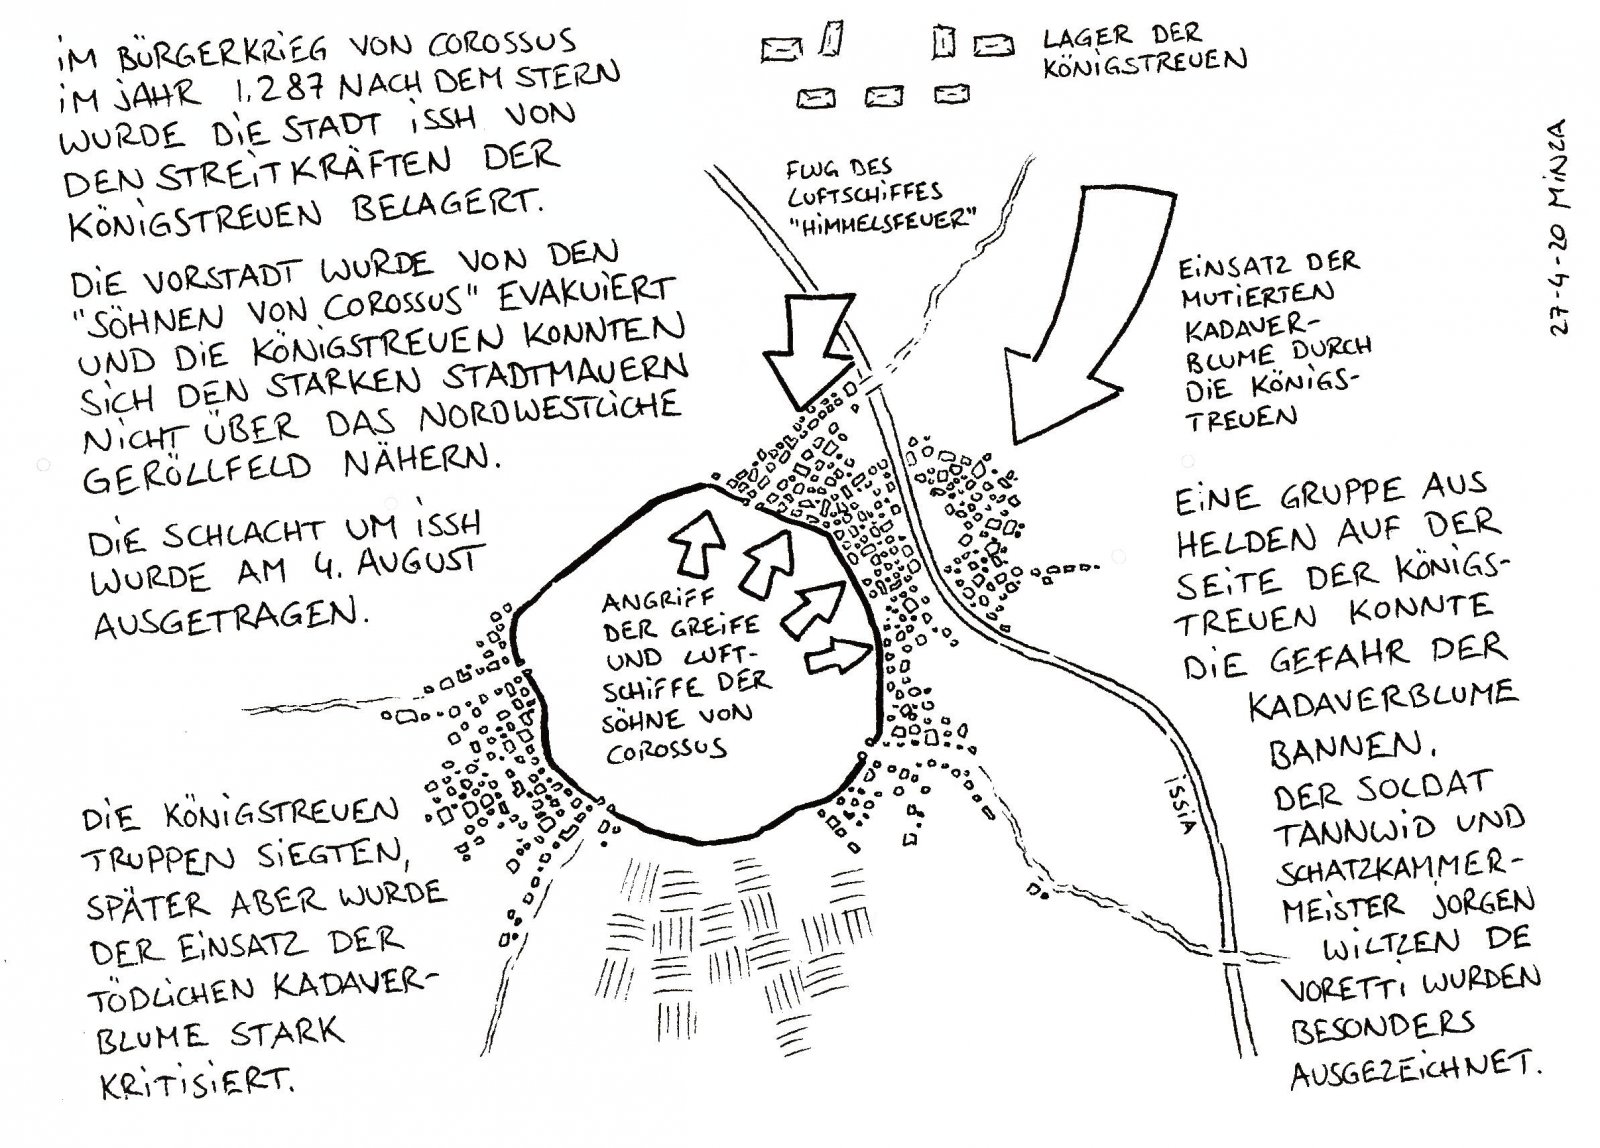 iM BÜRGERKRiEG VON COROSSUS
iM JAHR 1.287 NACH DEM STERN
WURDE DiE STADT iSSH VON
DEN STREiTKRÄFTEN DER
KÖNiGSTREUEN BELAGERT.
DiE VORSTADT WURDE VON DEN
"SÖHNEN VON COROSSUS" EVAKUiERT
UND DiE KÖNiGSTREUEN KONNTEN
SiCH DEN STARKEN STADTMAUERN
NiCHT ÜBER DAS NORDWESTLiCHE
GERÖLLFELD NÄHERN.
DiE SCHLACHT UM iSSH
WURDE AM 4. AUGUST
AUSGETRAGEN.
DiE KÖNiGSTREUEN
TRUPPEN SiEGTEN,
SPÄTER ABER WURDE
DER EiNSATZ DER
TÖDLiCHEN KADAVER-
BLUME STARK
KRiTiSiERT.
LAGER DER
KÖNiGSTREUEN
FLUG DES
LUFTSCHiFFES
"HiMMELSFEUER"
EiNSATZ DER
MUTiERTEN
KADAVER-
BLUME DURCH
DiE KÖNiGS-
TREUEN
ANGRiFF
DER GREiFE
UND LUFT-
SCHiFFE DER
SÖHNE VON
COROSSUS
iSSiA
EiNE GRUPPE AUS
HELDEN AUF DER
SEiTE DER KÖNiGS-
TREUEN KONNTE
DiE GEFAHR DER
KADAVERBLUME
BANNEN.
DER SOLDAT
TANNWiD UND
SCHATZKAMMER-
MEiSTER JORGEN
WiLTZEN DE
VORETTi WURDEN
BESONDERS
AUSGEZEiCHNET.
27-4-20 MiNZA